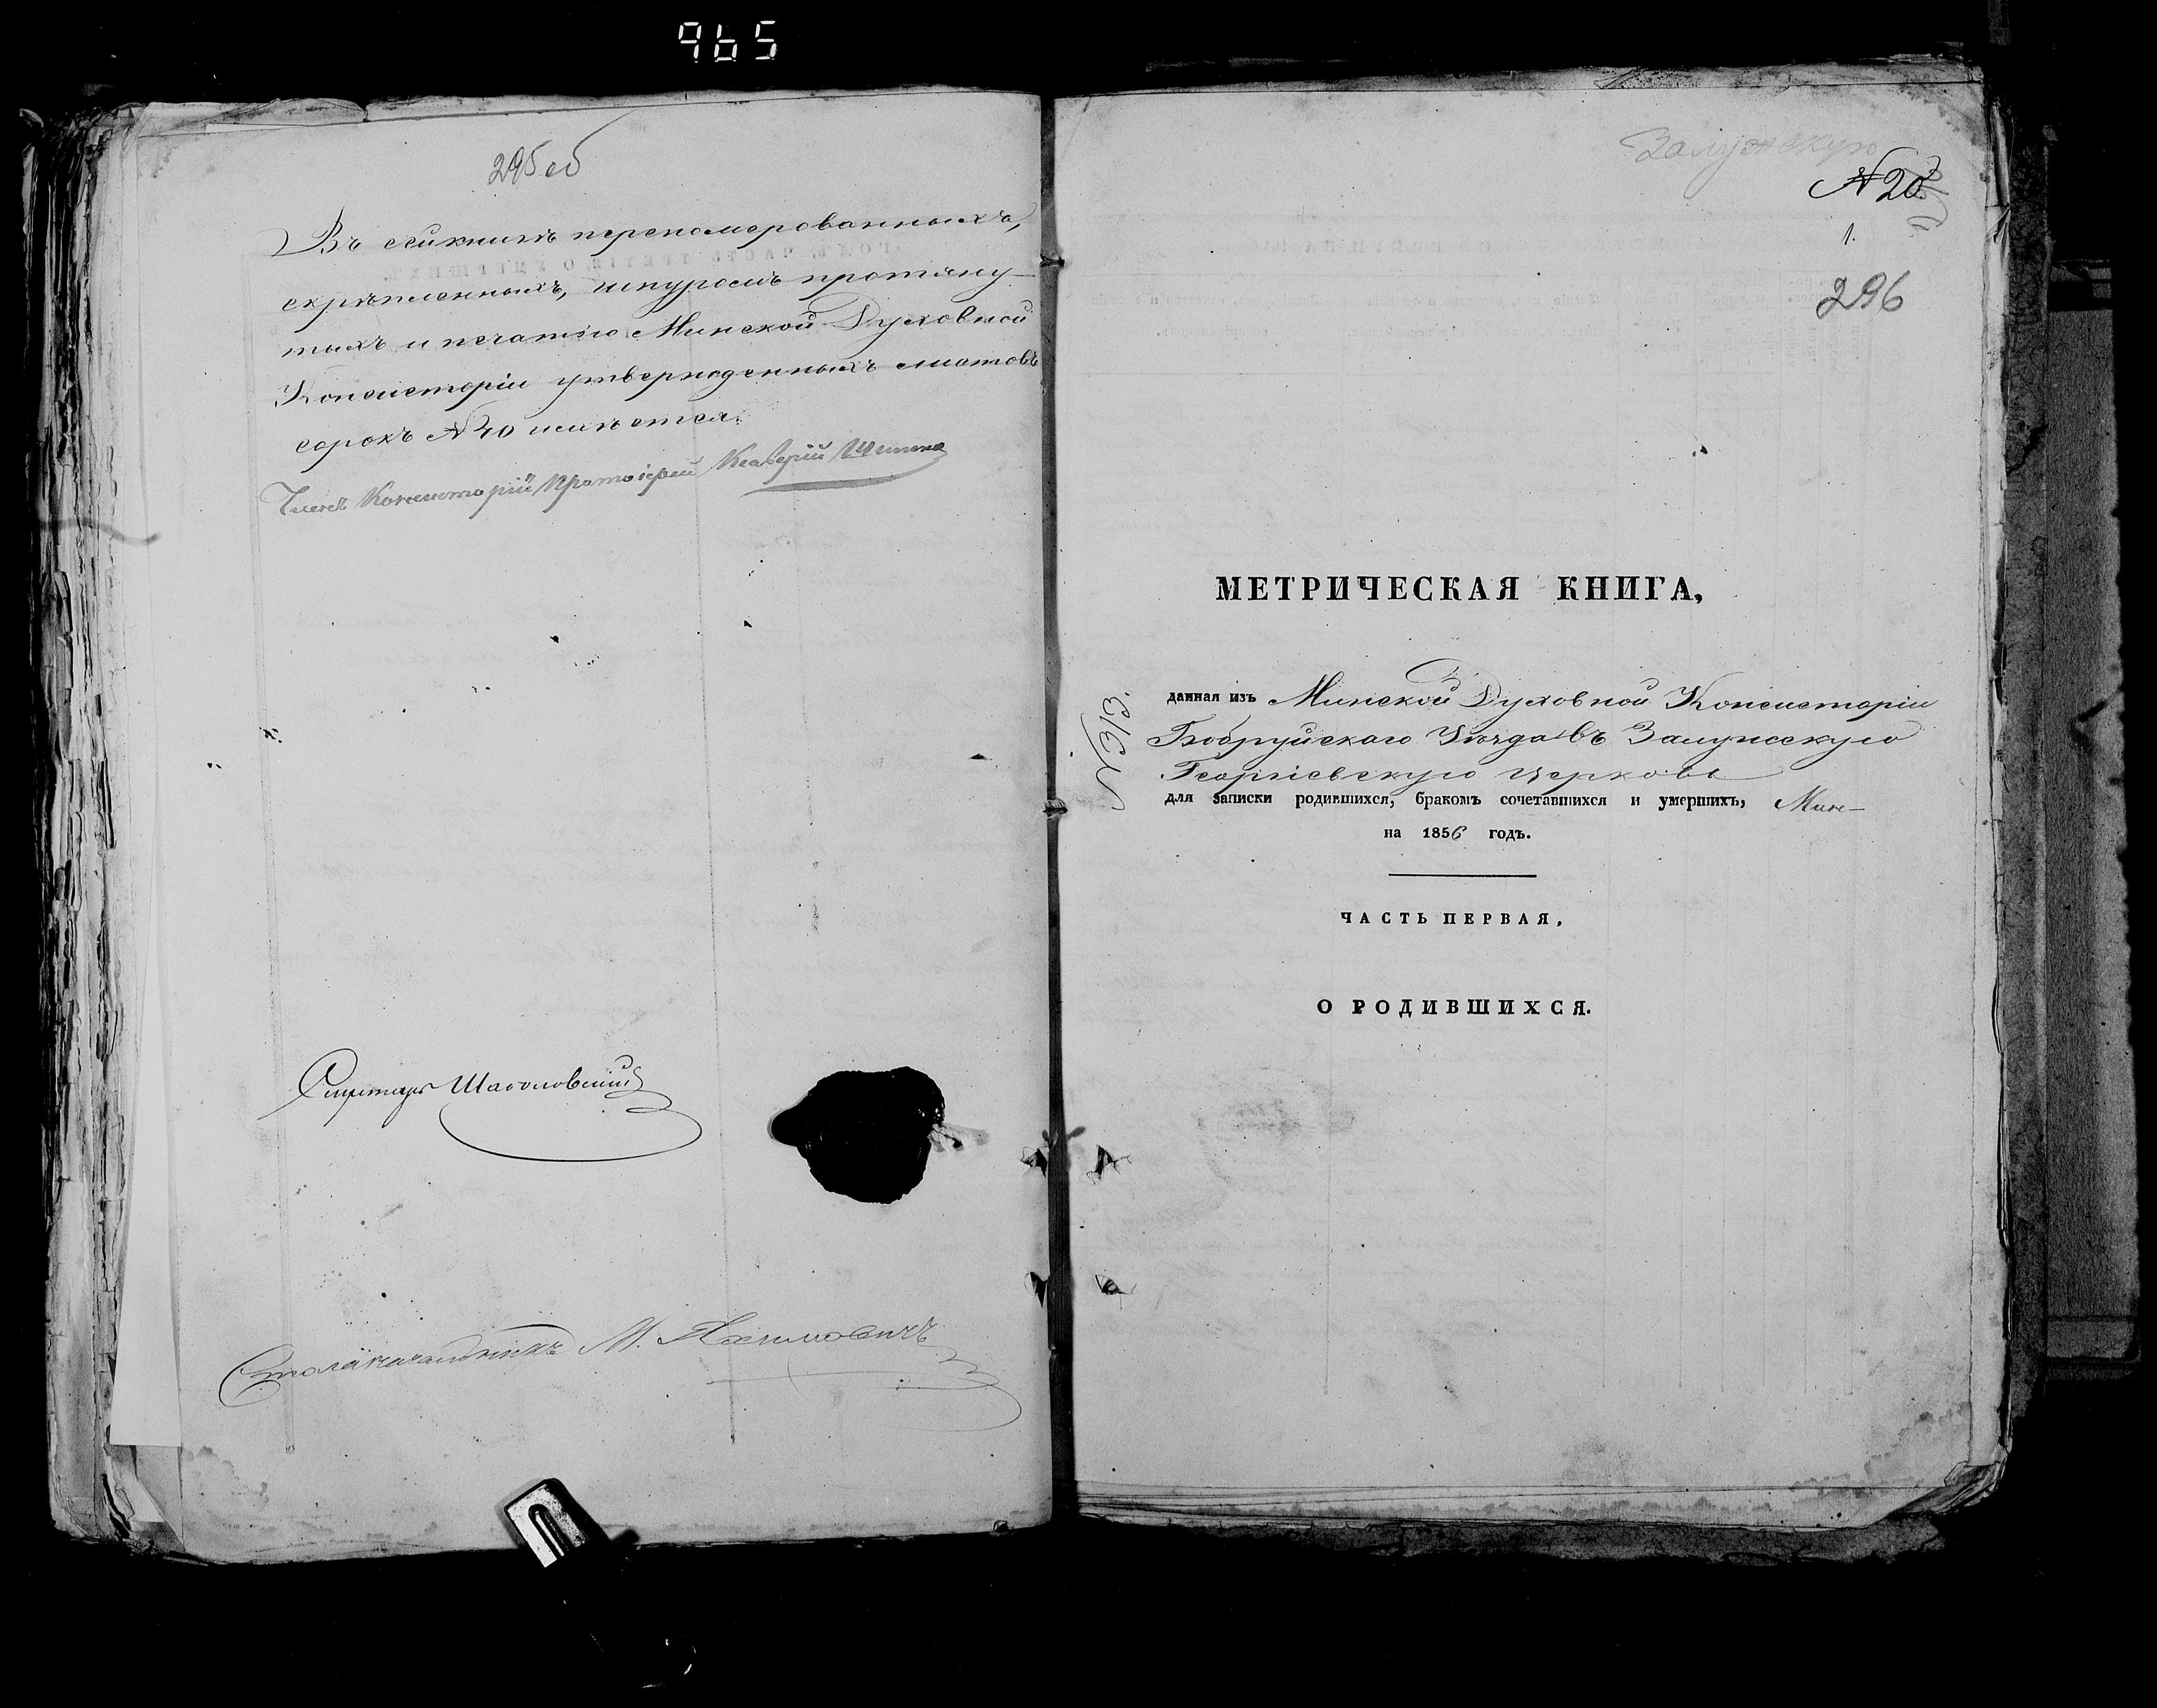 965
295 об
Въ сей книгѣ перепомерованныхъ,
скрѣпленныхъ, шнуромъ протяну-
тыхъ и печатію Минской Духовной
Консисторіи утвержденныхъ листовъ
сорокъ № 40 имѣется.
Членъ Консисторіи Протоіерей
Секретарь
Столоначальникъ М.
Залужскую
№ 20
1.
296
МЕТРИЧЕСКАЯ КНИГА,
№ 313.
данная изъ Минской Духовной Консисторіи
Бобруйскаго Уѣзда въ Залужскую
Георгіевскую церковь
для записки родившихся, бракомъ сочетавшихся и умершихъ,
на 1856 годъ.
ЧАСТЬ ПЕРВАЯ,
О РОДИВШИХСЯ.